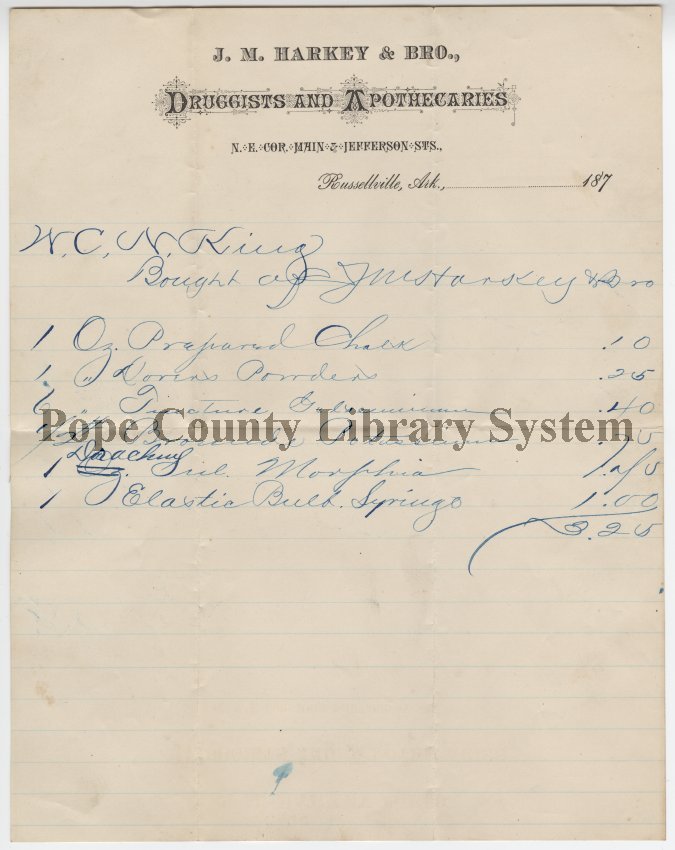 J. M. HARKEY & BRO.,
DRUGGISTS AND APOTHECARIES
N. E. COR. MAIN & JEFFERSON STS.,
Russellville, Ark., 187
W. C. N. King
Bought of J M Harkey & Bro
1 Oz. Prepared Chalk .10
1 " Dovers Powders .25
" Tincture .40
Pope County Library System
1 Sul. Morphia
1 Elastic Bulb. Syringe 1.00
3.25